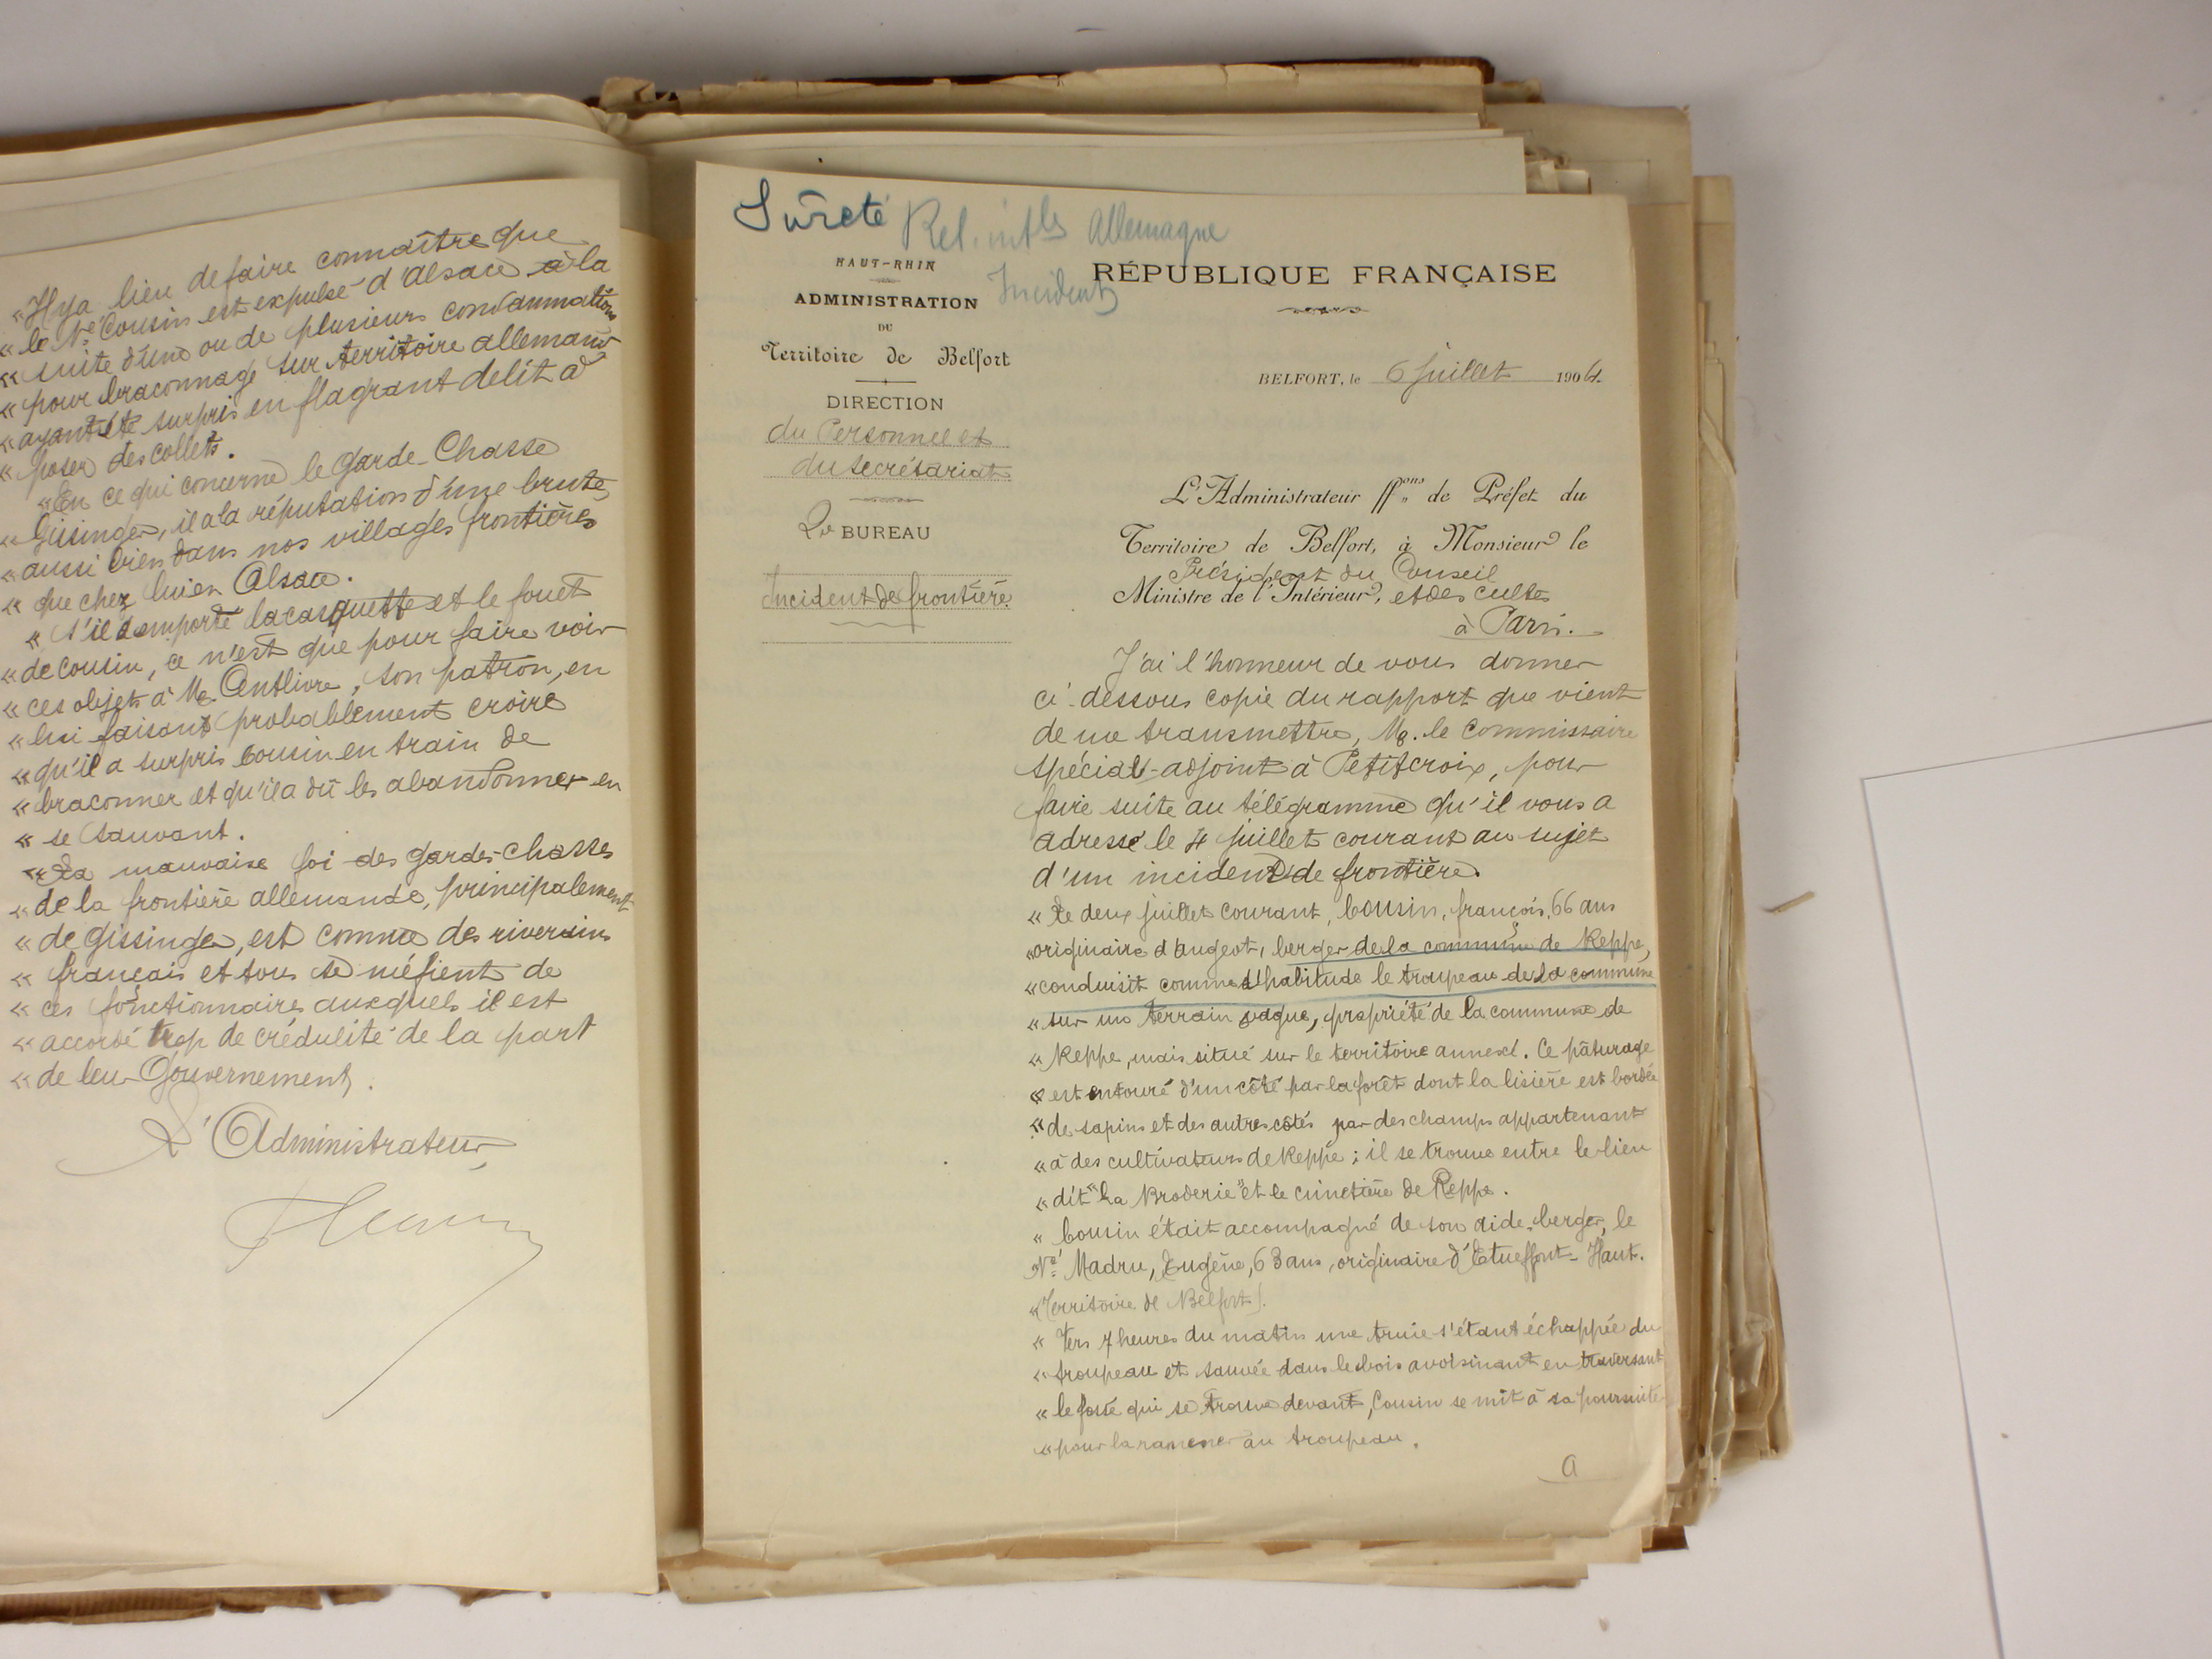 « Il y a lieu de faire connaître que
« le Né Cousin est expulsé d'Alsace à la
« suite d'une ou de plusieurs condamnations
« pour braconnage sur territoire allemand
« ayant été surpris en flagrant délit à
« poser des collets.
« En ce qui concerne le garde-Chasse
« Gissinger, il a la réputation d'une brute,
« aussi bien dans nos villages frontières
« que chez lui en Alsace.
« S'il a emporté la casquette et le fouet
« de Cousin, ce n'est que pour faire voir
« ces objets à Mr. Antlivre, son patron, en
« lui faisant probablement croire
« qu'il a surpris Cousin en train de
« braconner et qu'il a dû les abandonner en
« se sauvant.
« La mauvaise foi des gardes-chasses
« de la frontière allemande, principalement
« de Gissinger, est connue des riverains
« français et tous se méfient de
« ces fonctionnaires auxquels il est
« accordé trop de crédulité de la part
« de leur Gouvernement.
L'Administrateur,
Sûreté Rel. intles Allemagne
Incidents
HAUT-RHIN
ADMINISTRATION
DU
Territoire de Belfort
DIRECTION
du Personnel et
du Secrétariat
2e BUREAU
Incident de frontière
RÉPUBLIQUE FRANÇAISE
BELFORT, le 6 juillet 1904.
L'Administrateur ffons de Préfet du
Territoire de Belfort, à Monsieur le
Président du Conseil
Ministre de l'Intérieur, et des cultes
à Paris.
J'ai l'honneur de vous donner
ci-dessous copie du rapport que vient
de me transmettre, Mr. le Commissaire
spécial-adjoint à Petitcroix, pour
faire suite au télégramme qu'il vous a
adressé le 4 juillet courant au sujet
d'un incident de frontière.
« Le deux juillet courant, Cousin, françois, 66 ans
« originaire d'Angeot, berger de la commune de Reppe,
« conduisit comme d'habitude le troupeau de la commune
« sur un terrain vague, propriété de la commune de
« Reppe, mais situé sur le territoire annexé. Ce pâturage
« est entouré d'un côté par la forêt dont la lisière est bordée
« de sapins et des autres côtés par des champs appartenant
« à des cultivateurs de Reppe ; il se trouve entre le lieu
« dit "La Broderie" et le cimetière de Reppe.
« Cousin était accompagné de son aide-berger, le
« Né Madru, Eugène, 63 ans, originaire d'Etueffont-Haut.
« (Territoire de Belfort).
« Vers 7 heures du matin une truie s'étant échappée du
« troupeau et sauvée dans le bois avoisinant en traversant
« le fossé qui se trouve devant, Cousin se mit à sa poursuite
« pour la ramener au troupeau.
a